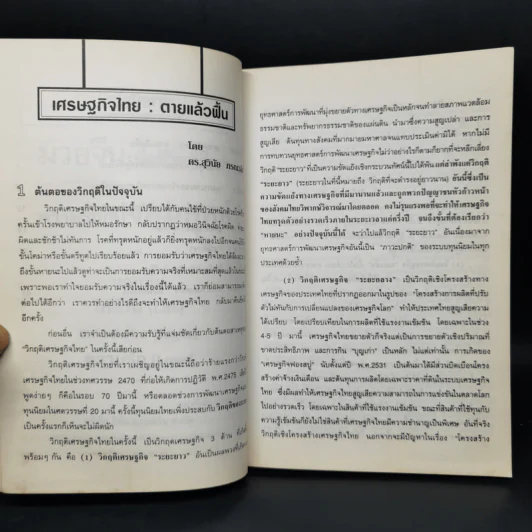 เศรษฐกิจไทย : ตายแล้วฟื้น
โดย
ดร.สุวินัย
1 ต้นตอของวิกฤติในปัจจุบัน
วิกฤติเศรษฐกิจไทยในขณะนี้ เปรียบได้กับคนไข้ที่ป่วยหนักด้วย
ครั้นเข้าโรงพยาบาลไปให้หมอรักษา กลับปรากฏว่าหมอวินิจฉัยโรคผิด
ผิดและชักช้าไม่ทันการ โรคที่ทรุดหนักอยู่แล้วก็ยิ่งทรุดหนักลงไปอีกจนคนไข้
ขั้นโคม่าหรือขั้นตรีทูตไปเรียบร้อยแล้ว การยอมรับว่าเศรษฐกิจไทยได้
ถึงขั้นหายนะไปแล้วดูท่าจะเป็นการยอมรับความจริงที่เหมาะสมที่สุดแล้ว
เพราะพอเราทำใจยอมรับความจริงในเรื่องนี้ได้แล้ว เราก็ย่อมสามารถ
ต่อไปได้อีกว่า เราควรทำอย่างไรดีถึงจะทำให้เศรษฐกิจไทย กลับมาฟื้น
อีกครั้ง
ก่อนอื่น เราจำเป็นต้องมีความรู้ที่แจ่มชัดเกี่ยวกับต้นตอสาเหตุ
"วิกฤติเศรษฐกิจไทย" ในครั้งนี้เสียก่อน
วิกฤติเศรษฐกิจไทยที่เราเผชิญอยู่ในขณะนี้ถือว่าร้ายแรงกว่า
เศรษฐกิจไทยในช่วงทศวรรษ 2470 ที่ก่อให้เกิดการปฏิวัติ พ.ศ.2475
พูดง่ายๆ ก็คือในรอบ 70 ปีมานี้ หรือตลอดช่วงการพัฒนาเศรษฐกิจ
ทุนนิยมในศตวรรษที่ 20 มานี้ ครั้งนี้ทุนนิยมไทยเพิ่งประสบกับ
เป็นครั้งแรกก็เห็นจะไม่ผิดนัก
วิกฤติเศรษฐกิจไทยในครั้งนี้ เป็นวิกฤตเศรษฐกิจ 3 ด้าน
พร้อมๆ กัน คือ (1) วิกฤติเศรษฐกิจ "ระยะยาว" อันเป็นผลพวง
ยุทธศาสตร์การพัฒนาที่มุ่งขยายตัวทางเศรษฐกิจเป็นหลักจนทำลายสภาพแวดล้อม
ธรรมชาติและทรัพยากรธรรมชาติของแผ่นดิน นำมาซึ่งความสูญเปล่า และการ
สูญเสีย ต้นทุนทางสังคมที่มากมายมหาศาลจนแทบประเมินค่ามิได้ หากไม่มี
การทบทวนยุทธศาสตร์การพัฒนานี้ไม่ว่าอย่างไรก็ตามก็ยากที่จะหลีกเลี่ยง
วิกฤติ "ระยะยาว" ที่เป็นความขัดแย้งเชิงกระบวนทัศน์นี้ไปได้พ้น
"ระยะยาว" (ระยะยาวในที่นี้หมายถึง วิกฤติที่จะดำรงอยู่ยาวนาน) อันนี้ซึ่งเป็น
ความขัดแย้งทางเศรษฐกิจที่มีมานานแล้วและถูกพวกปัญญาชนหัวก้าวหน้า
ของสังคมไทยวิพากษ์วิจารณ์มาโดยตลอด คงไม่รุนแรงพอที่จะทำให้เศรษฐกิจ
ไทยทรุดตัวอย่างรวดเร็วภายในระยะเวลาแค่ครึ่งปี จนถึงขั้นที่ต้องเรียกว่า
"หายนะ" อย่างปัจจุบันนี้ได้ จะว่าไปแล้ววิกฤติ "ระยะยาว" อันเนื่องมาจาก
ยุทธศาสตร์การพัฒนาเศรษฐกิจอันนี้เป็น "ภาวะปกติ" ของระบบทุนนิยมในทุก
ประเทศด้วยซ้ำ
(2) วิกฤติเศรษฐกิจ "ระยะกลาง" เป็นวิกฤติเชิงโครงสร้างทาง
เศรษฐกิจของประเทศไทยที่ปรากฏออกมาในรูปของ "โครงสร้างการผลิตที่ปรับ
ตัวไม่ทันกับการเปลี่ยนแปลงของเศรษฐกิจโลก" ทำให้ประเทศไทยสูญเสียความ
ได้เปรียบ โดยเปรียบเทียบในการผลิตที่ใช้แรงงานเข้มข้น โดยเฉพาะในช่วง
4-5 ปีมานี้ เศรษฐกิจไทยขยายตัวก็จริงแต่เป็นการขยายตัวเชิงปริมาณที่
ขาดประสิทธิภาพ และการกิน "บุญเก่า" เป็นหลัก ไม่แต่เท่านั้น การเกิดของ
"เศรษฐกิจฟองสบู่" นับตั้งแต่ปี พ.ศ.2531 เป็นต้นมาได้มีส่วนบิดเบือนโครง
สร้างค่าจ้างเงินเดือน และต้นทุนการผลิตโดยเฉพาะราคาที่ดินในระบบเศรษฐกิจ
ไทย ซึ่งมีผลทำให้เศรษฐกิจไทยสูญเสียความสามารถในการแข่งขันในตลาดโลก
ไปอย่างรวดเร็ว โดยเฉพาะในสินค้าที่ใช้แรงงานเข้มข้น ขณะที่สินค้าที่ใช้ทุนกับ
ความรู้เข้มข้นก็ยังไม่ใช่สินค้าที่เศรษฐกิจไทยมีความชำนาญเป็นพิเศษ อันที่จริง
วิกฤติเชิงโครงสร้างเศรษฐกิจไทย นอกจากจะมีปัญหาในเรื่อง "โครงสร้าง